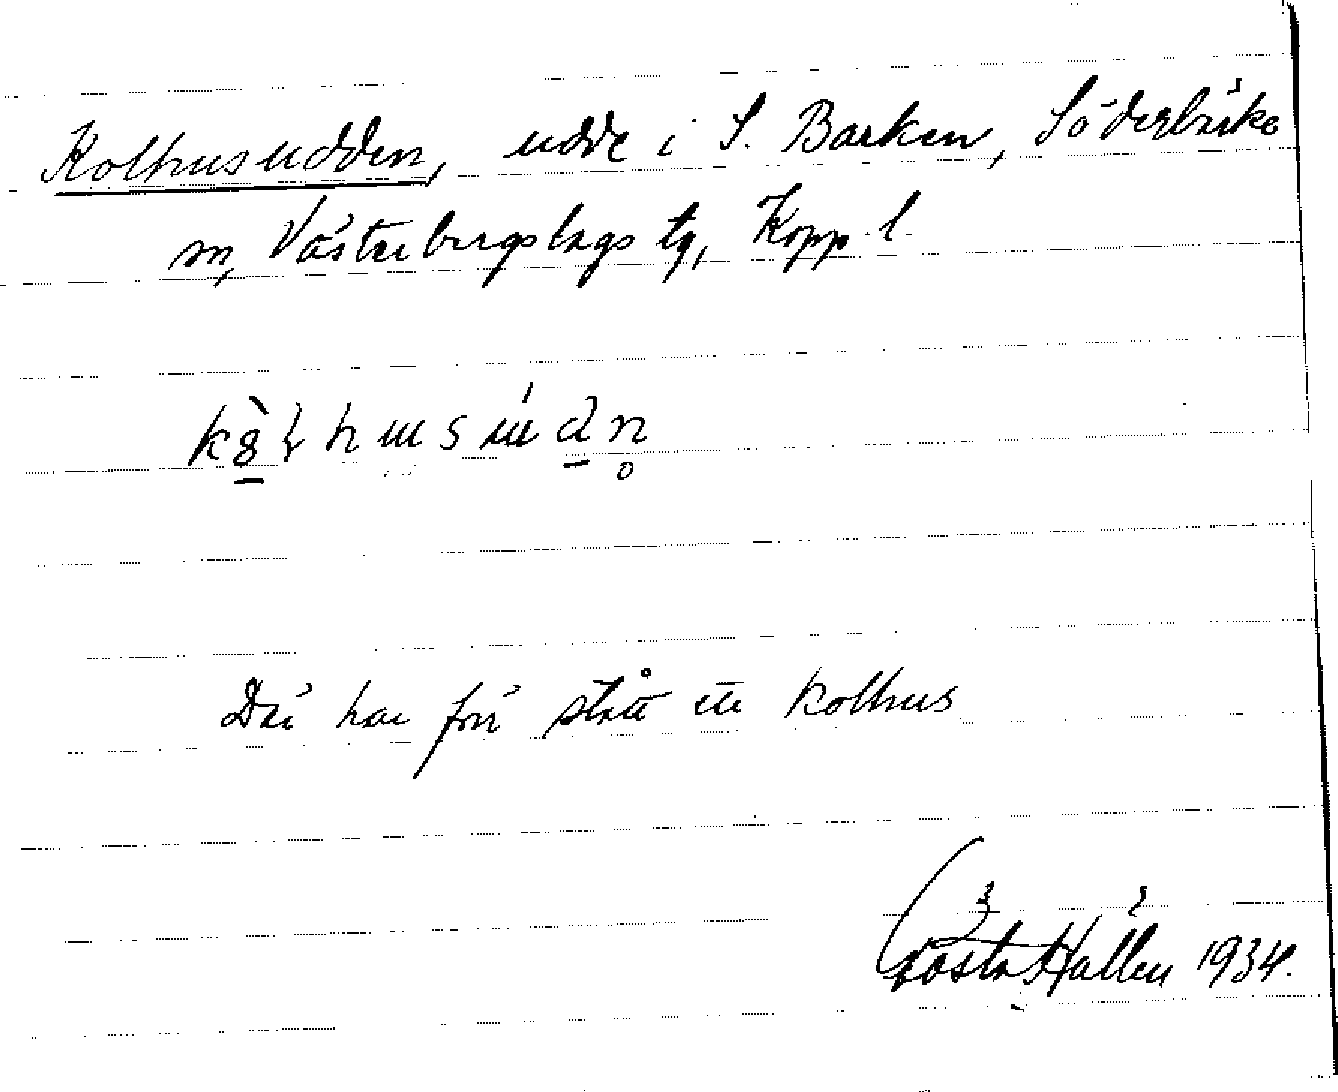 Kolhusudden, udde i S. Barken, Söderbärke
sn, Västerbergslags tg, Kopp. l.
Där har förr stått ett kolhus
Gösta Hallen 1934.